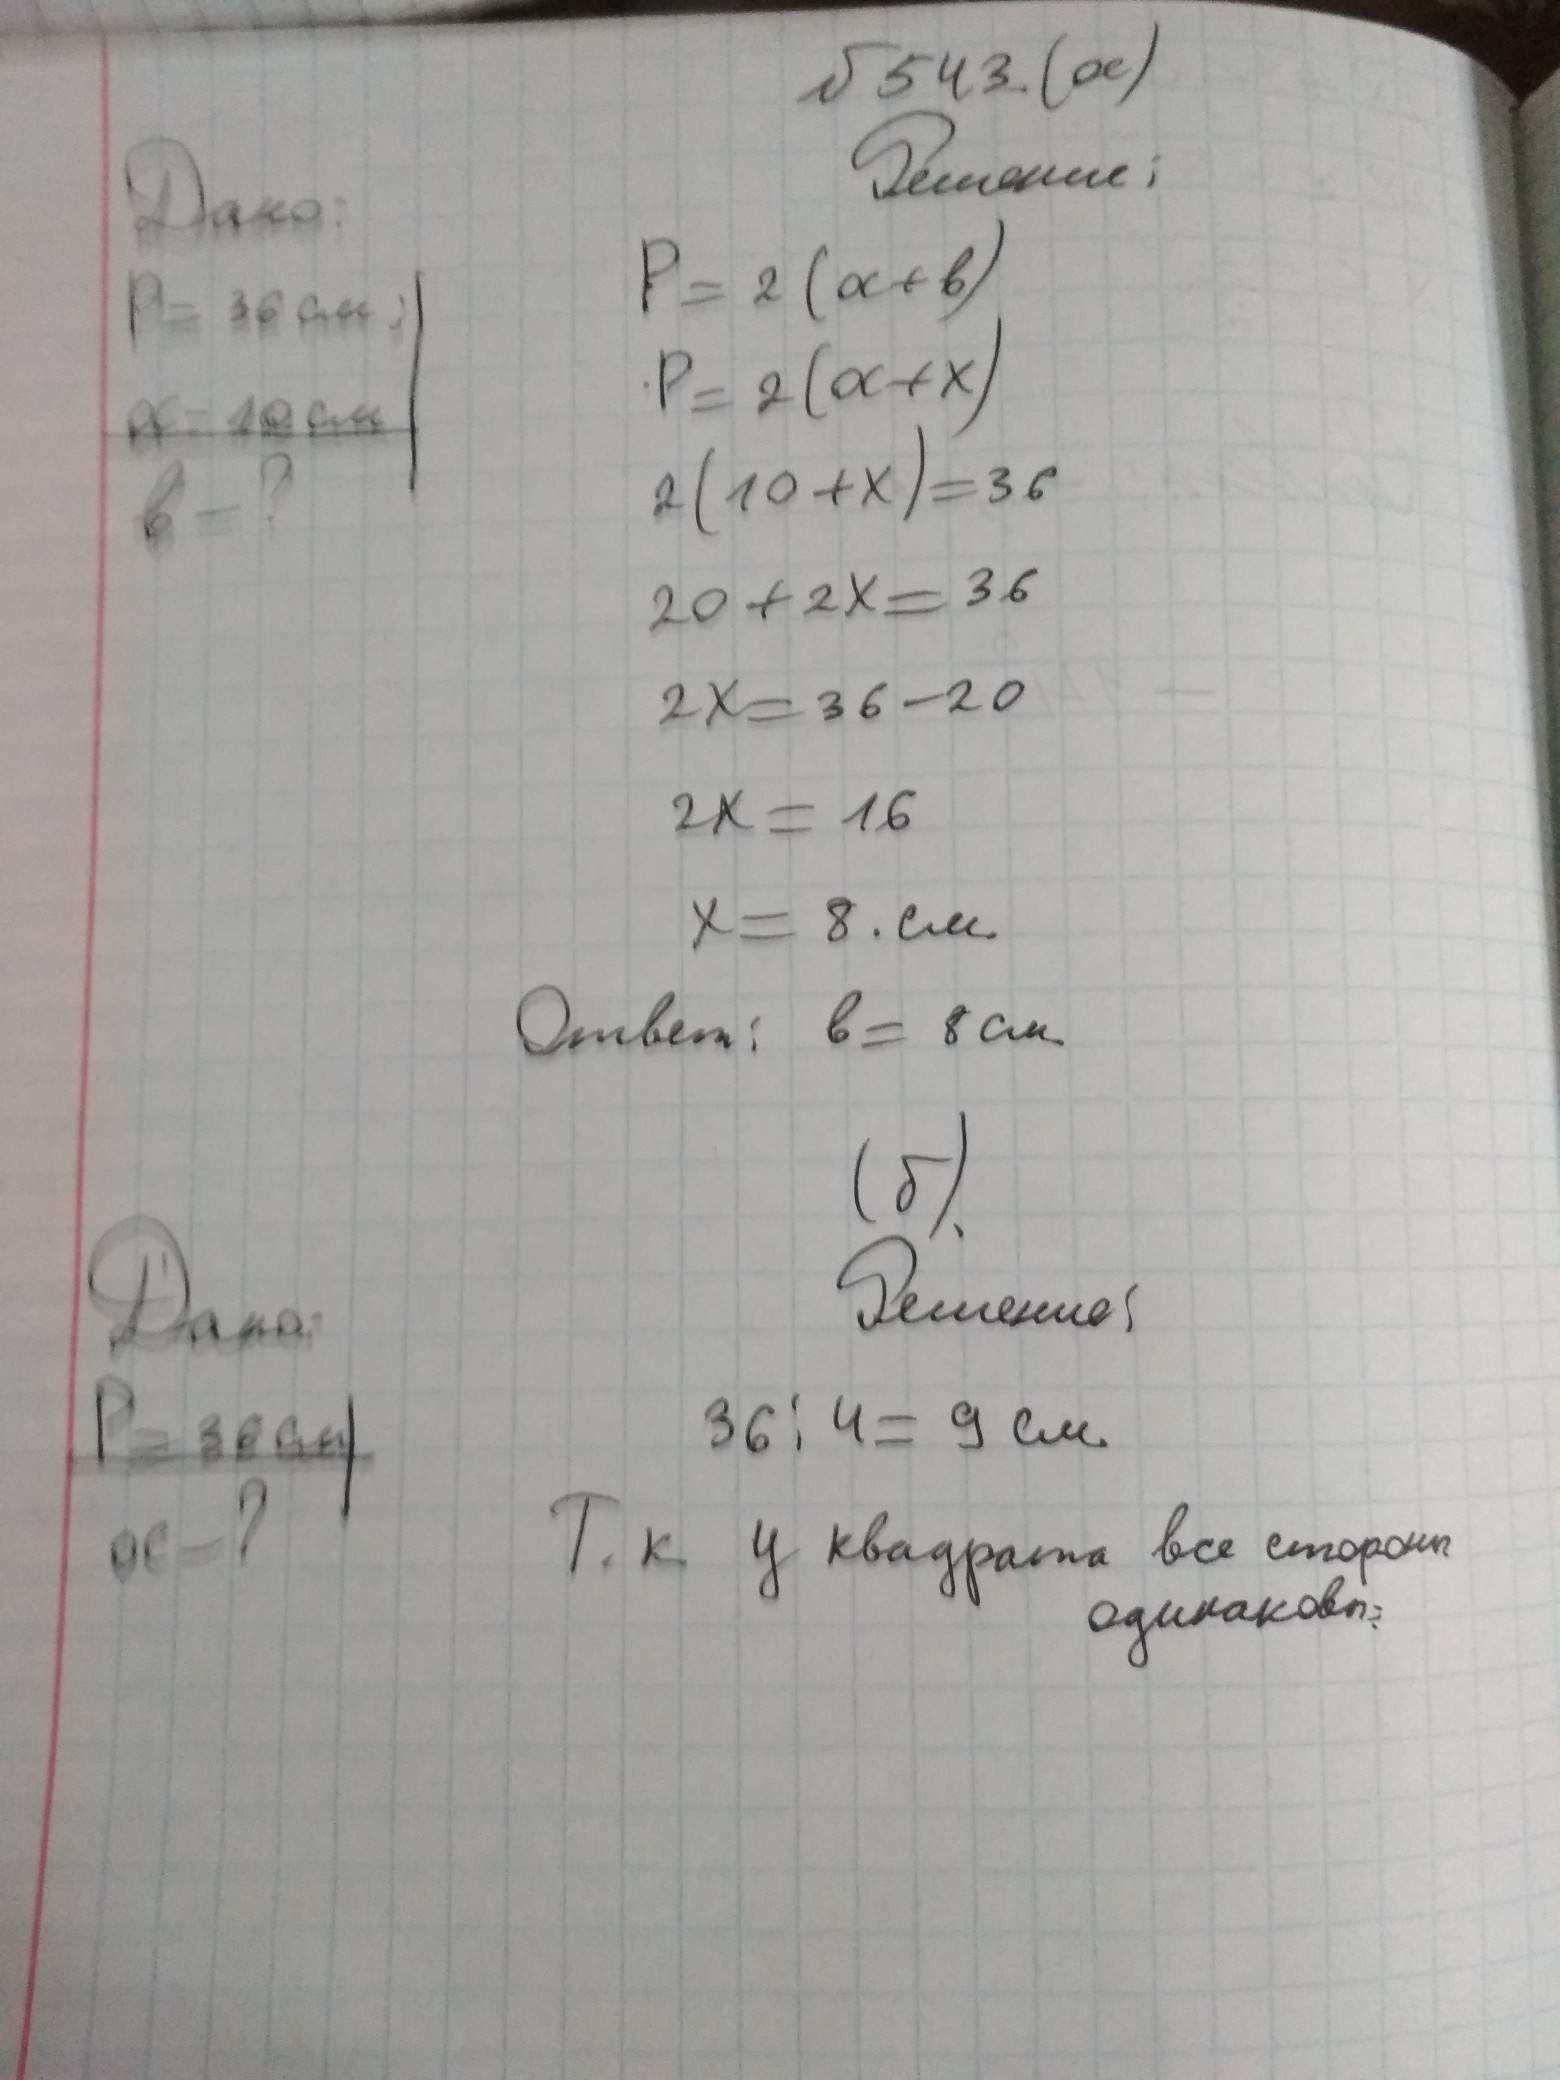 №543.(а)
Решение:
Дано:
P = 36 см;
а = 10 см
в = ?
P = 2(а+в)
P = 2(а+x)
2(10+x)=36
20+2x=36
2x=36-20
2x=16
x=8.см.
Ответ: в = 8 см.
(б).
Решение:
Дано:
P = 36 см
а - ?
36:4=9 см.
Т.к у квадрата все стороны
одинаковы.